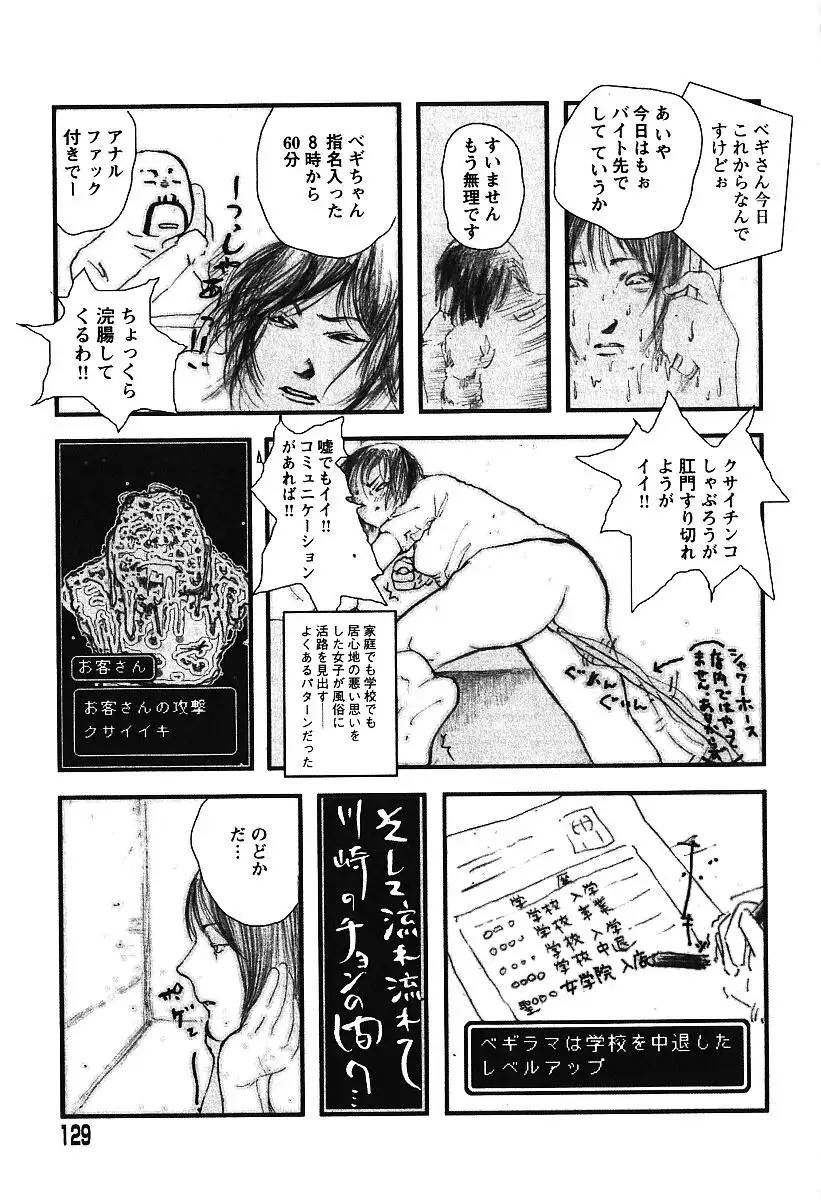 ベギさん今日
これからなんで
すけどぉ
あいや
今日はもぉ
バイト先で
してていうか
すいません
もう無理です
ベギちゃん
指名入った
8時から
60分
アナル
ファック
付きでー
ちょっくら
浣腸して
くるわ!!
クサイチンコ
しゃぶろうが
肛門すり切れ
ようが
イイ!!
嘘でもイイ!!
コミュニケーション
があれば!!
シャワーホース
ぐいん
ぐいん
家庭でも学校でも
居心地の悪い思いを
した女子が風俗に
活路を見出す――
よくあるパターンだった
お客さん
お客さんの攻撃
クサイイキ
学 歴
○○○学校 入学
○○○○学校 卒業
○○○○学校 入学
○○○○学校 中退
聖○○○女学院 入店
ベギラマは学校を中退した
レベルアップ
そして流れ流れて
川崎のチョンの間へ…
のどか
だ…
ポゲ〜
129